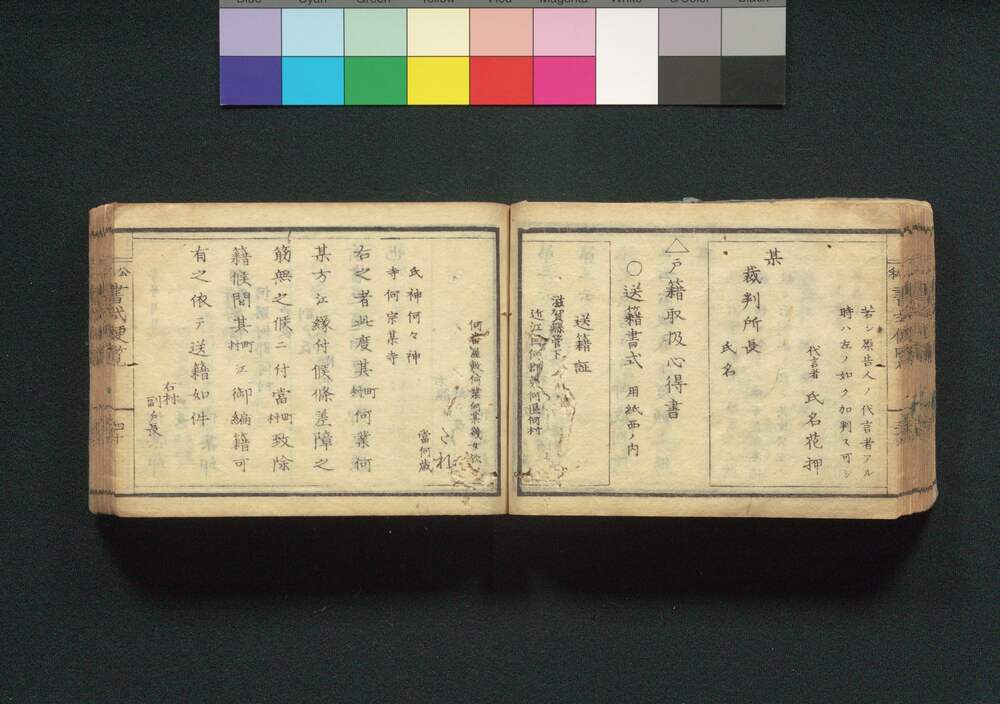 若シ原告人ノ代言者アル
時ハ左ノ如ク加判ス可シ
代言者 氏名花押
某
裁判所長
氏名
△戸籍取扱心得書
○送籍書式 用紙西ノ内
送籍証
滋賀縣管下
近江国何郡第何区何村
何番屋敷何某何業幾女
當何歳
氏神何々神
寺何宗某寺
右之者此度其町村何業何
某方江縁付候條差障之
筋無之候ニ付當町村致除
籍候間其町村江御編籍可
有之依テ送籍如件
右村
副戸長
書式便覧
四十
Blue Cyan Green Yellow Red Magenta White 3/Color Black